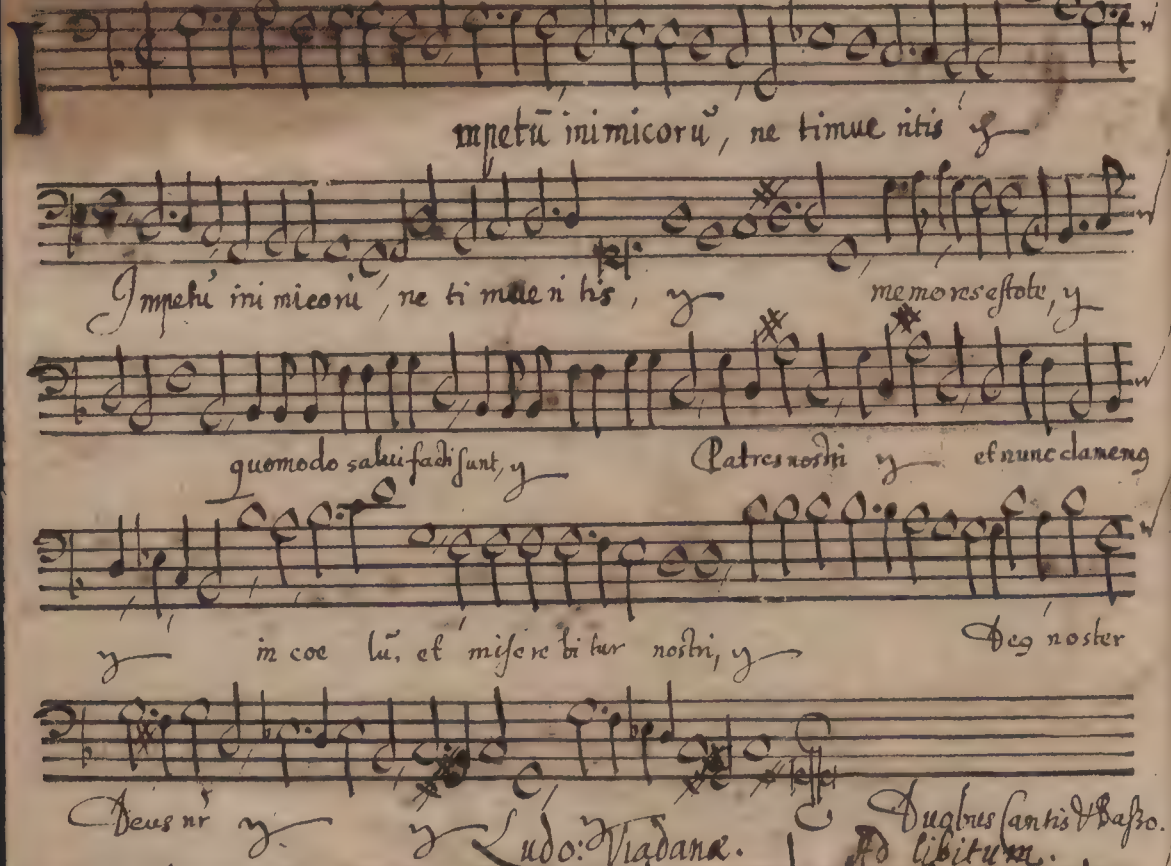 Impetū inimicorū, ne timue ritis
Impetū ini micorū, ne ti mue ri tis, y memores estote, y
quomodo salui facti sunt, y Patres nostri y et nunc clamemꝰ
y in coe lū. et misere bi tur nostri, y Deꝰ noster
Deus nr̄ y y Duobus Cantis & Basso.
Ludo: Viadanæ. Ad libitum.